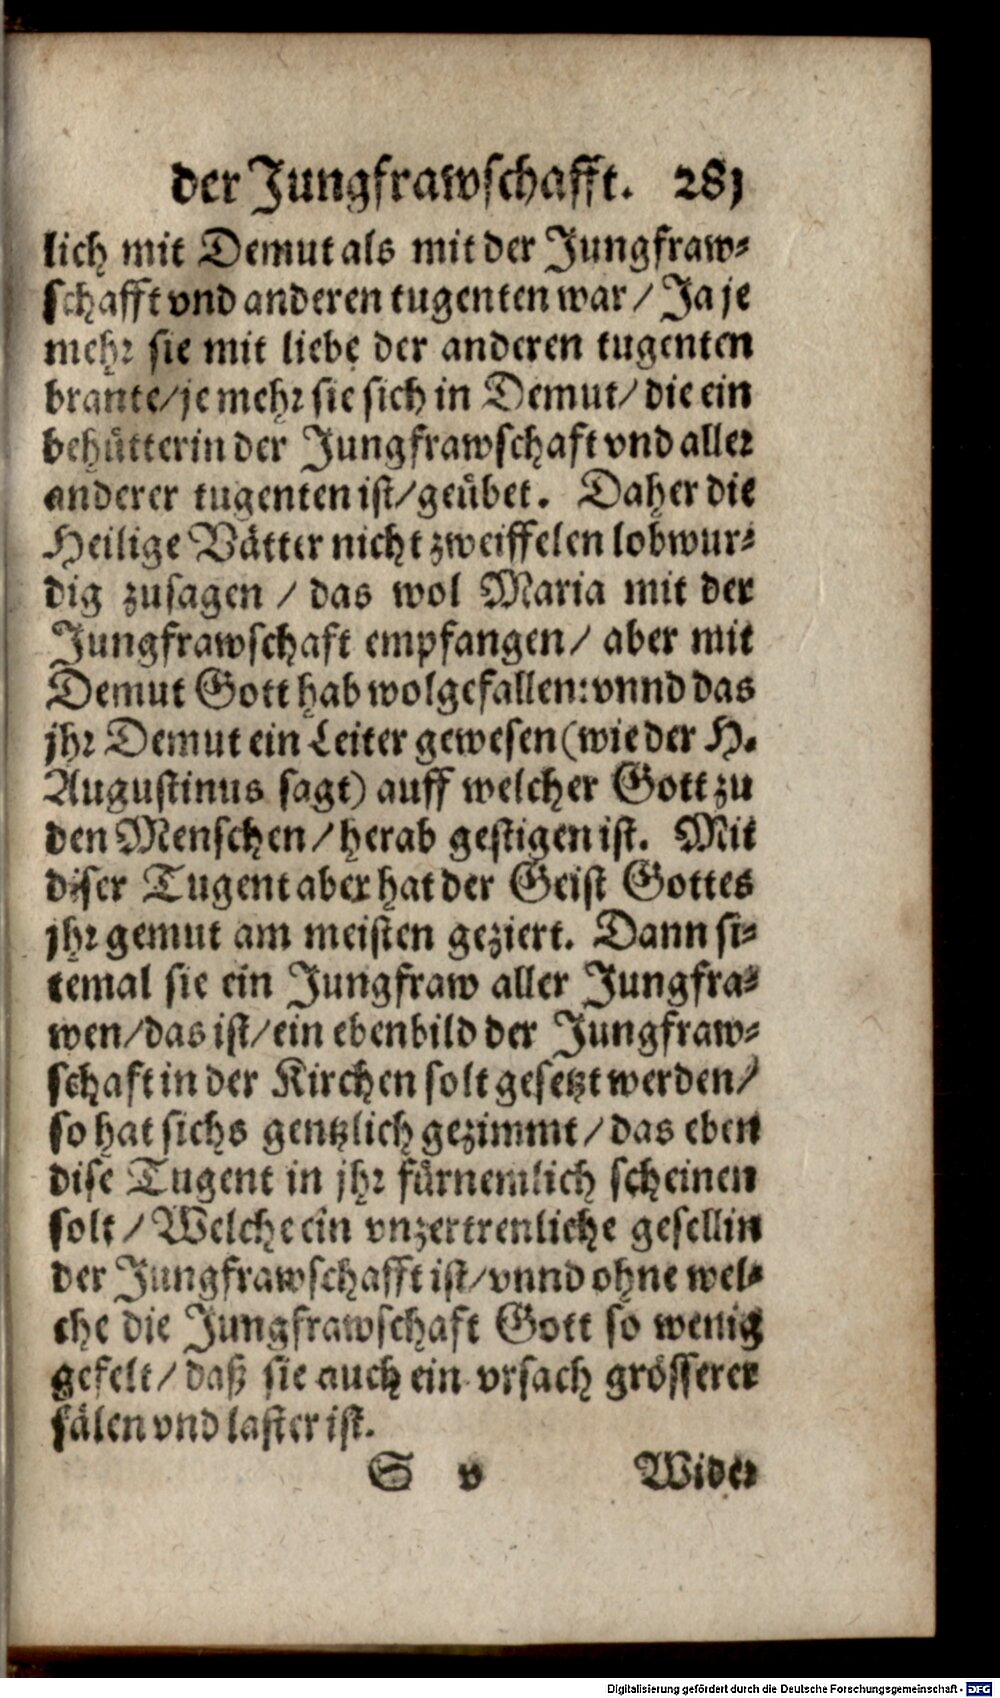 der Jungfrawschafft. 281
lich mit Demut als mit der Jungfraw-
schafft vnd anderen tugenten war / Ja je
mehr sie mit liebe der anderen tugenten
brante / je mehr sie sich in Demut / die ein
behütterin der Jungfrawschaft vnd aller
anderer tugenten ist / geübet. Daher die
Heilige Vätter nicht zweiffelen lobwur-
dig zusagen / das wol Maria mit der
Jungfrawschaft empfangen / aber mit
Demut Gott hab wolgefallen: vnnd das
jhr Demut ein Leiter gewesen (wie der H.
Augustinus sagt) auff welcher Gott zu
den Menschen / herab gestigen ist. Mit
diser Tugent aber hat der Geist Gottes
jhr gemut am meisten geziert. Dann si-
temal sie ein Jungfraw aller Jungfra-
wen / das ist / ein ebenbild der Jungfraw-
schaft in der Kirchen solt gesetzt werden /
so hat sichs gentzlich gezimmt / das eben
dise Tugent in jhr fürnemlich scheinen
solt / Welche ein vnzertrenliche gesellin
der Jungfrawschafft ist / vnnd ohne wel-
che die Jungfrawschaft Gott so wenig
gefelt / daß sie auch ein vrsach grösserer
fälen vnd laster ist.
S v Wider
Digitalisierung gefördert durch die Deutsche Forschungsgemeinschaft - DFG